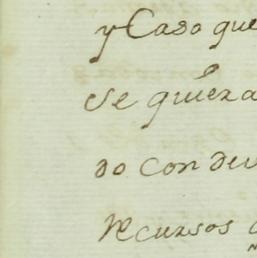 y Caso que
se quiera
do con de
recursos